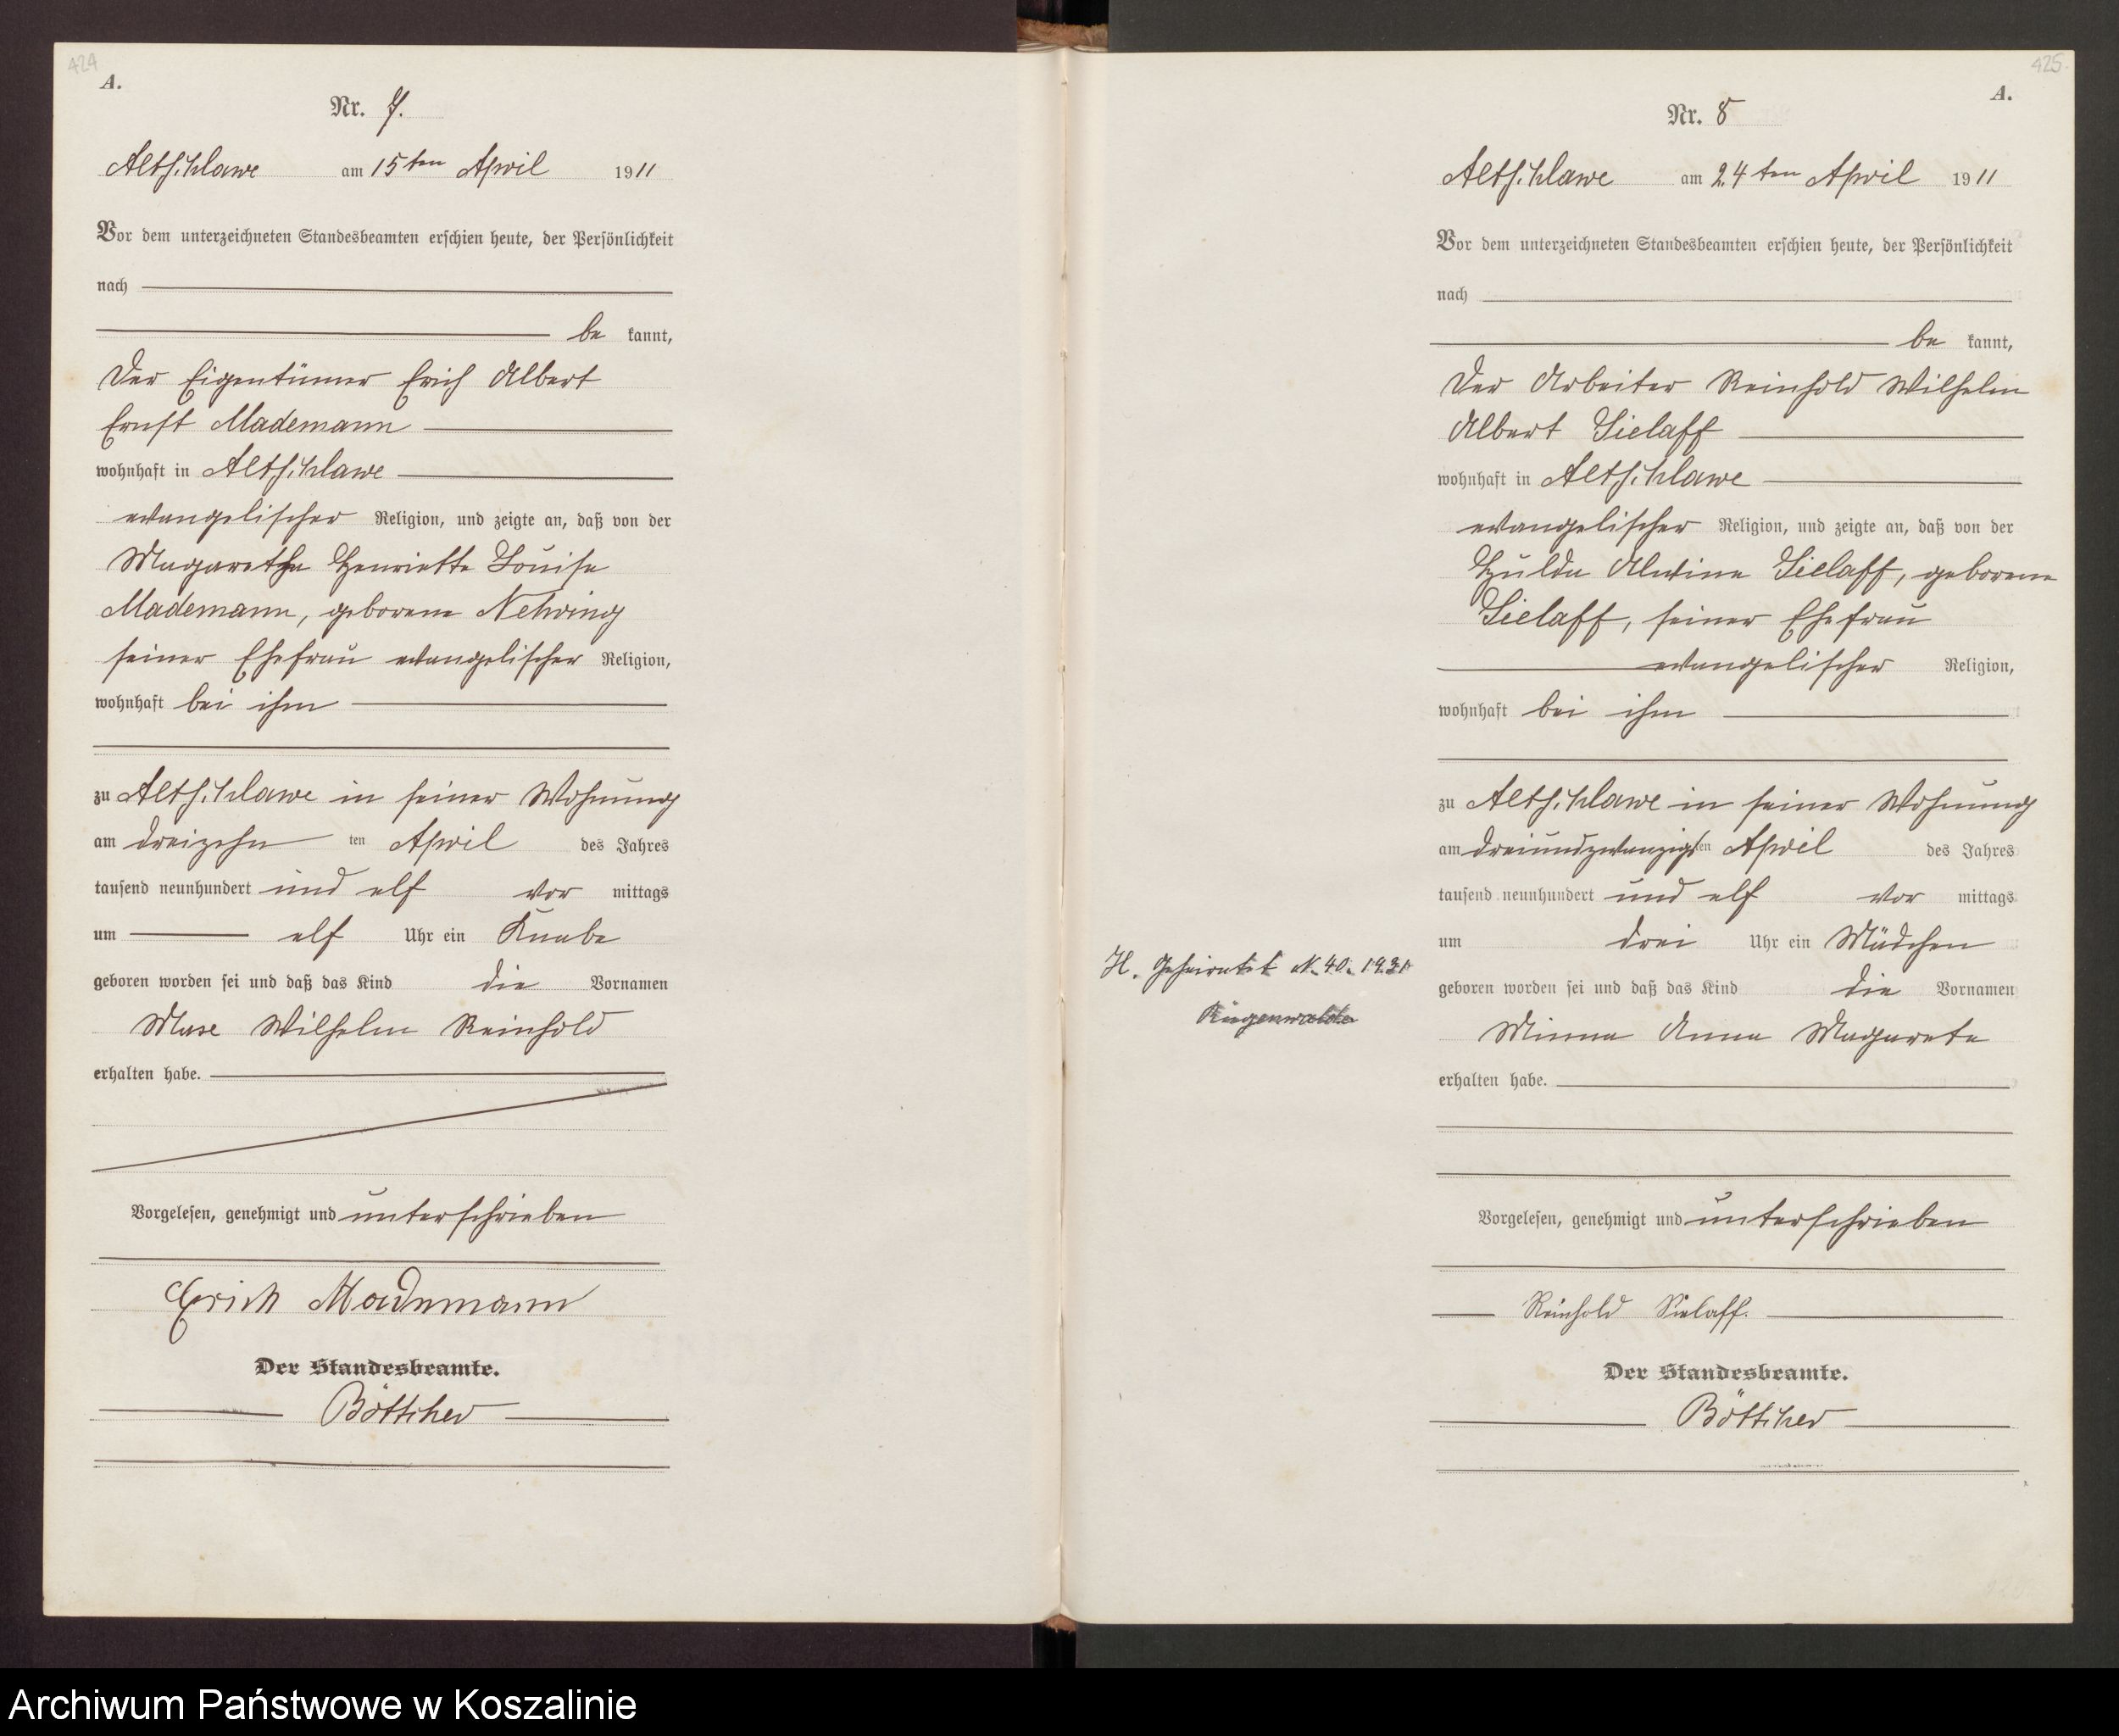 424
A.
Nr. 7.
Altschlawe am 15ten April 1911
Vor dem unterzeichneten Standesbeamten erschien heute, der Persönlichkeit
nach
be kannt,
Der Eigentümer Erich Albert
Ernst Mademann
wohnhaft in Altschlawe
evangelischer Religion, und zeigte an, daß von der
Magarethe Henriette Louise
Mademann, geborene Nehring
seiner Ehefrau evangelischer Religion,
wohnhaft bei ihm
zu Altschlawe in seiner Wohnung
am dreizehn ten April des Jahres
tausend neunhundert und elf vor mittags
um elf Uhr ein Knabe
geboren worden sei und daß das Kind die Vornamen
Max Wilhelm Reinhold
erhalten habe.
Vorgelesen, genehmigt und unterschrieben
Erich Mademann
Der Standesbeamte.
Böttcher
425.
A.
Nr. 8
Altschlawe am 24ten April 1911
Vor dem unterzeichneten Standesbeamten erschien heute, der Persönlichkeit
nach
be kannt,
Der Arbeiter Reinhold Wilhelm
Albert Sielaff
wohnhaft in Altschlawe
evangelischer Religion, und zeigte an, daß von der
Hulda Alwine Sielaff, geborene
Sielaff, seiner Ehefrau
evangelischer Religion,
wohnhaft bei ihm
zu Altschlawe in seiner Wohnung
am dreiundzwanzigsten April des Jahres
tausend neunhundert und elf vor mittags
um drei Uhr ein Mädchen
geboren worden sei und daß das Kind die Vornamen
Minna Anna Magarete
erhalten habe.
Vorgelesen, genehmigt und unterschrieben
Reinhold Sielaff.
Der Standesbeamte.
Böttcher
H. Geheiratet N. 40. 1931
Rügenwalde
Archiwum Państwowe w Koszalinie